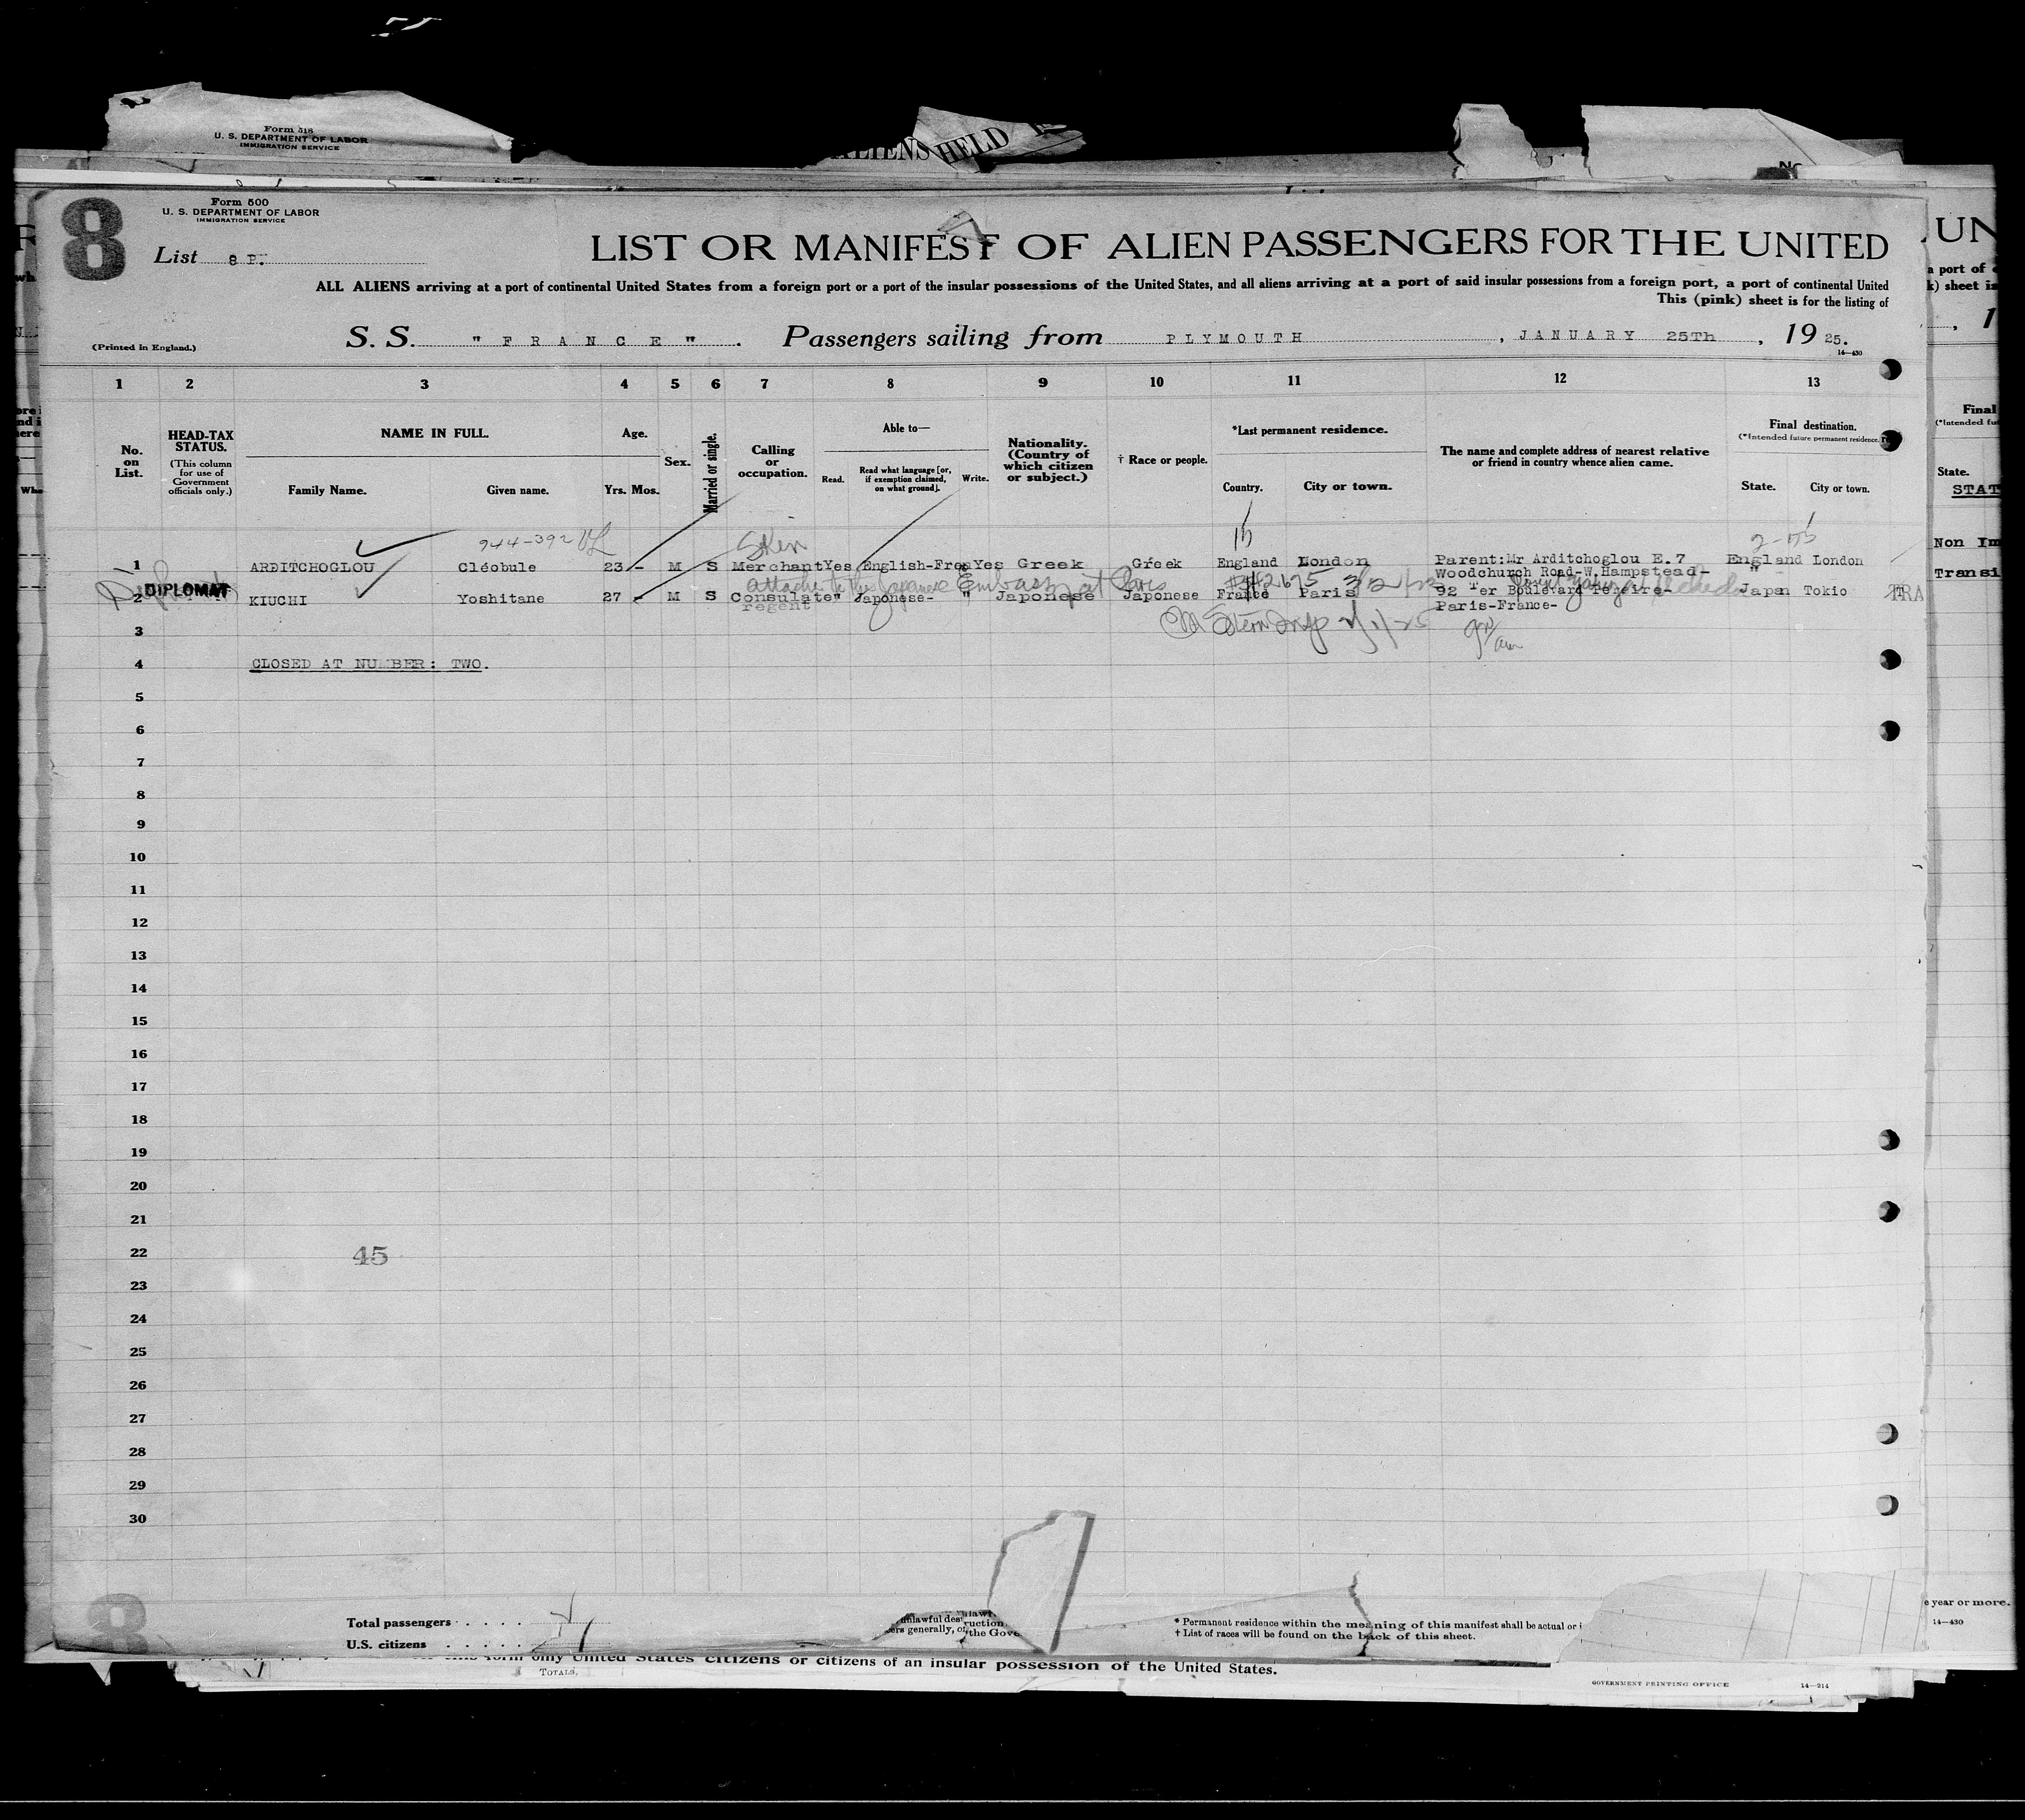 Form 518
U. S. DEPARTMENT OF LABOR
IMMIGRATION SERVICE
ALIENS HELD
8
Form 500
U. S. DEPARTMENT OF LABOR
IMMIGRATION SERVICE
List 8
LIST OR MANIFEST OF ALIEN PASSENGERS FOR THE UNITED
ALL ALIENS arriving at a port of continental United States from a foreign port or a port of the insular possessions of the United States, and all aliens arriving at a port of said insular possessions from a foreign port, a port of continental United
This (pink) sheet is for the listing of
(Printed in England.)
S. S. " F R A N C E " . Passengers sailing from PLYMOUTH , JANUARY 25Th , 19 25.
14—430
1 2 3 4 5 6 7 8 9 10 11 12 13
No. on List.
HEAD-TAX STATUS.
(This column for use of Government officials only.)
NAME IN FULL.
Family Name. Given name.
Age.
Yrs. Mos.
Sex.
Married or single.
Calling or occupation.
Able to—
Read. Read what language [or, if exemption claimed, on what ground]. Write.
Nationality. (Country of which citizen or subject.)
† Race or people.
*Last permanent residence.
Country. City or town.
The name and complete address of nearest relative or friend in country whence alien came.
Final destination.
(*Intended future permanent residence.
State. City or town.
944-392
1 ARDITCHOGLOU Cléobule 23 - M S Merchant Yes English-Fren Yes Greek Gréek England London Parent:Mr Arditchoglou E.7 England London
Woodchurch Road-W.Hampstead- "
attache to the Japanese Embassy at Paris
DIPLOMAT
2 KIUCHI Yoshitane 27 - M S Consulate " Japonese- " Japonese Japonese France Paris 92 Ter Boulevard Japan Tokio TRA
regent
Paris-France-
3
4 CLOSED AT NUMBER: TWO.
5
6
7
8
9
10
11
12
13
14
15
16
17
18
19
20
21
22 45
23
24
25
26
27
28
29
30
8
Total passengers . . . .
U.S. citizens . . . . .
* Permanent residence within the meaning of this manifest shall be actual or i
† List of races will be found on the back of this sheet.
only United States citizens or citizens of an insular possession of the United States.
TOTALS,
GOVERNMENT PRINTING OFFICE 14—214
UN
a port of
k) sheet is
Final
State.
STAT
Non Im
Transi
e year or more.
14—430